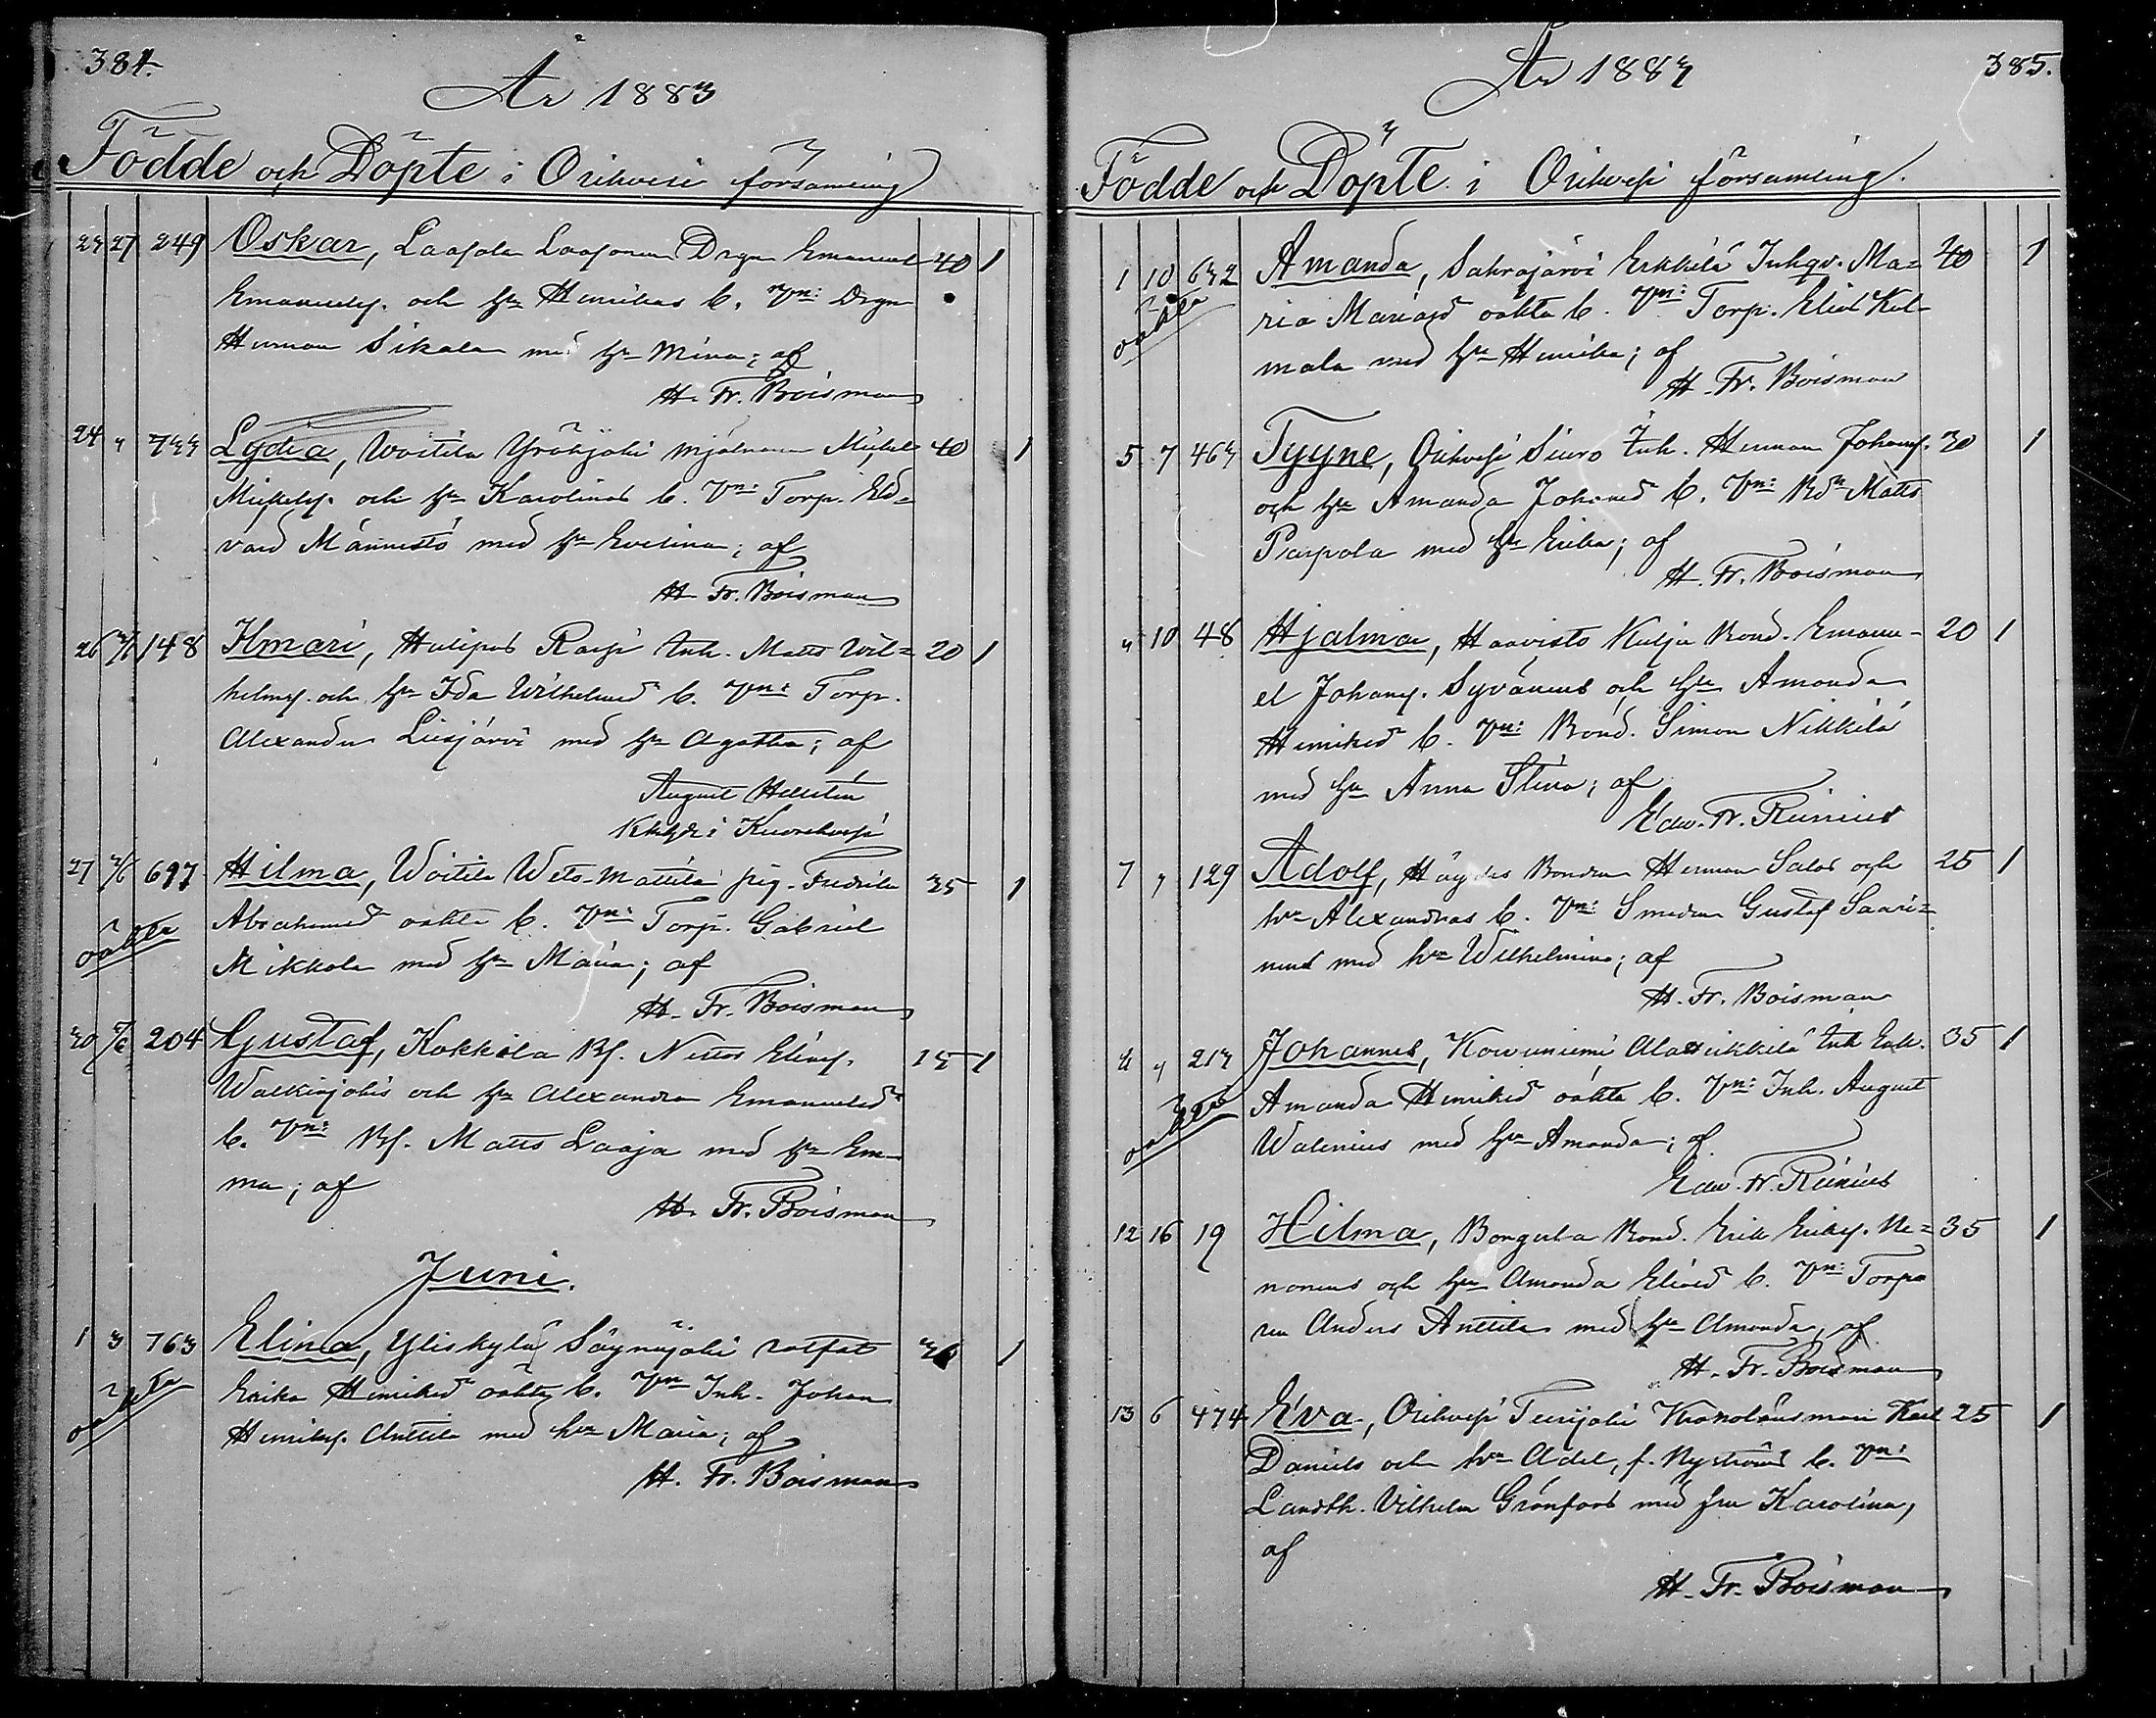 384.
År 1883
Födde och Döpte i Orihvesi församling
23 27 249 Oskar, Laasola Laasonen Drgn Emanuel 40 1
Emanuelss. och hu Henrikas b. Vn: Drgn
Herman Sikala med hu Mina; af
H. Fr. Boisman
24 " 733 Lydia, Woitila Yrönjoki mjölnaren Mickel 40 1
Mickelss. och hu Karolinas b. Vn: Torp. Ed=
vard Männistö med hu Evelina; af
H. Fr. Boisman
26 3/6 148 Ilmari, Hulipas Inh. Matts Wil= 20 1
helmss. och hu Ida Wilhelmsd b. Vn: Torp.
Alexander Liesjärvi med hu Agatha; af
August Hellstén
i Kuorehvesi
27 3/6 697 Hilma, Woitila Wets-Mattila pig. Fredrika 35 1
oäkta Abrahamsd oäkta b. Vn: Torp. Gabriel
Mikkola med hu Maria; af
H. Fr. Boisman
30 204 Gustaf, Kokkola Bs. 15 1
Walkiajokis och hu Alexandra Emanuelsd
b. Vn: Bs. Matts Laaja med hu Em-
ma; af
H. Fr. Boisman
Juni.
1 3 763 Elina, Yliskylä Säynäjoki rotfat 1
oäkta Erika Henriksd oäkta b. Vn Inh. Johan
Henrikss. Anttila med hu Maria; af
H. Fr. Boisman
År 1883
385.
Födde och Döpte i Orihvesi församling.
1 10 632 Amanda, Sahrajärvi Erkkilä Inhqv. Ma= 40 1
oäkta ria Mariasd oäkta b. Vn: Torp. Elias Kul-
mala med hu Henrika; af
H. Fr. Boisman
5 7 463 Tyyne, Orihvesi Siuro Inh. Herman Johanss. 30 1
och hu Amanda Johansd b. Vn: Bdn Matts
Parpola med hu Erika; af
H. Fr. Boisman
" 10 48 Hjalmar, Haavisto Kulju Bond. Emanu- 20 1
el Johanss. Syvänens och hu Amanda
Henriksd b. Vn: Bond. Simon Nikkilä
med hu Anna Stina; af
Edw. Fr. Reinius
7 " 129 Adolf, Bonden Herman Salos och 25 1
hu Alexandras b. Vn: Smeden Gustaf Saari=
nens med hu Wilhelmina; af
H. Fr. Boisman
8 " 213 Johannes, Kowuniemi Inh Enk. 35 1
oäkta Amanda Henriksd oäkta b. Vn: Inh. August
Walenius med hu Amanda; af
Edw. Fr. Reinius
12 16 19 Hilma, Bongerla Bond. Erik Erikss. Ne= 35 1
nonens och hu Amanda Eliasd b. Vn: Torpa
ren Anders Anttila med hu Amanda; af
H. Fr. Boisman
13 6 474 Eva, Orihvesi Teerijoki Kronolänsman Karl 25 1
Daniels och hu Adel, f. Nyström b. Vn:
Landth. Vilhelm Grönfors med fru Karolina,
af
H. Fr. Boisman